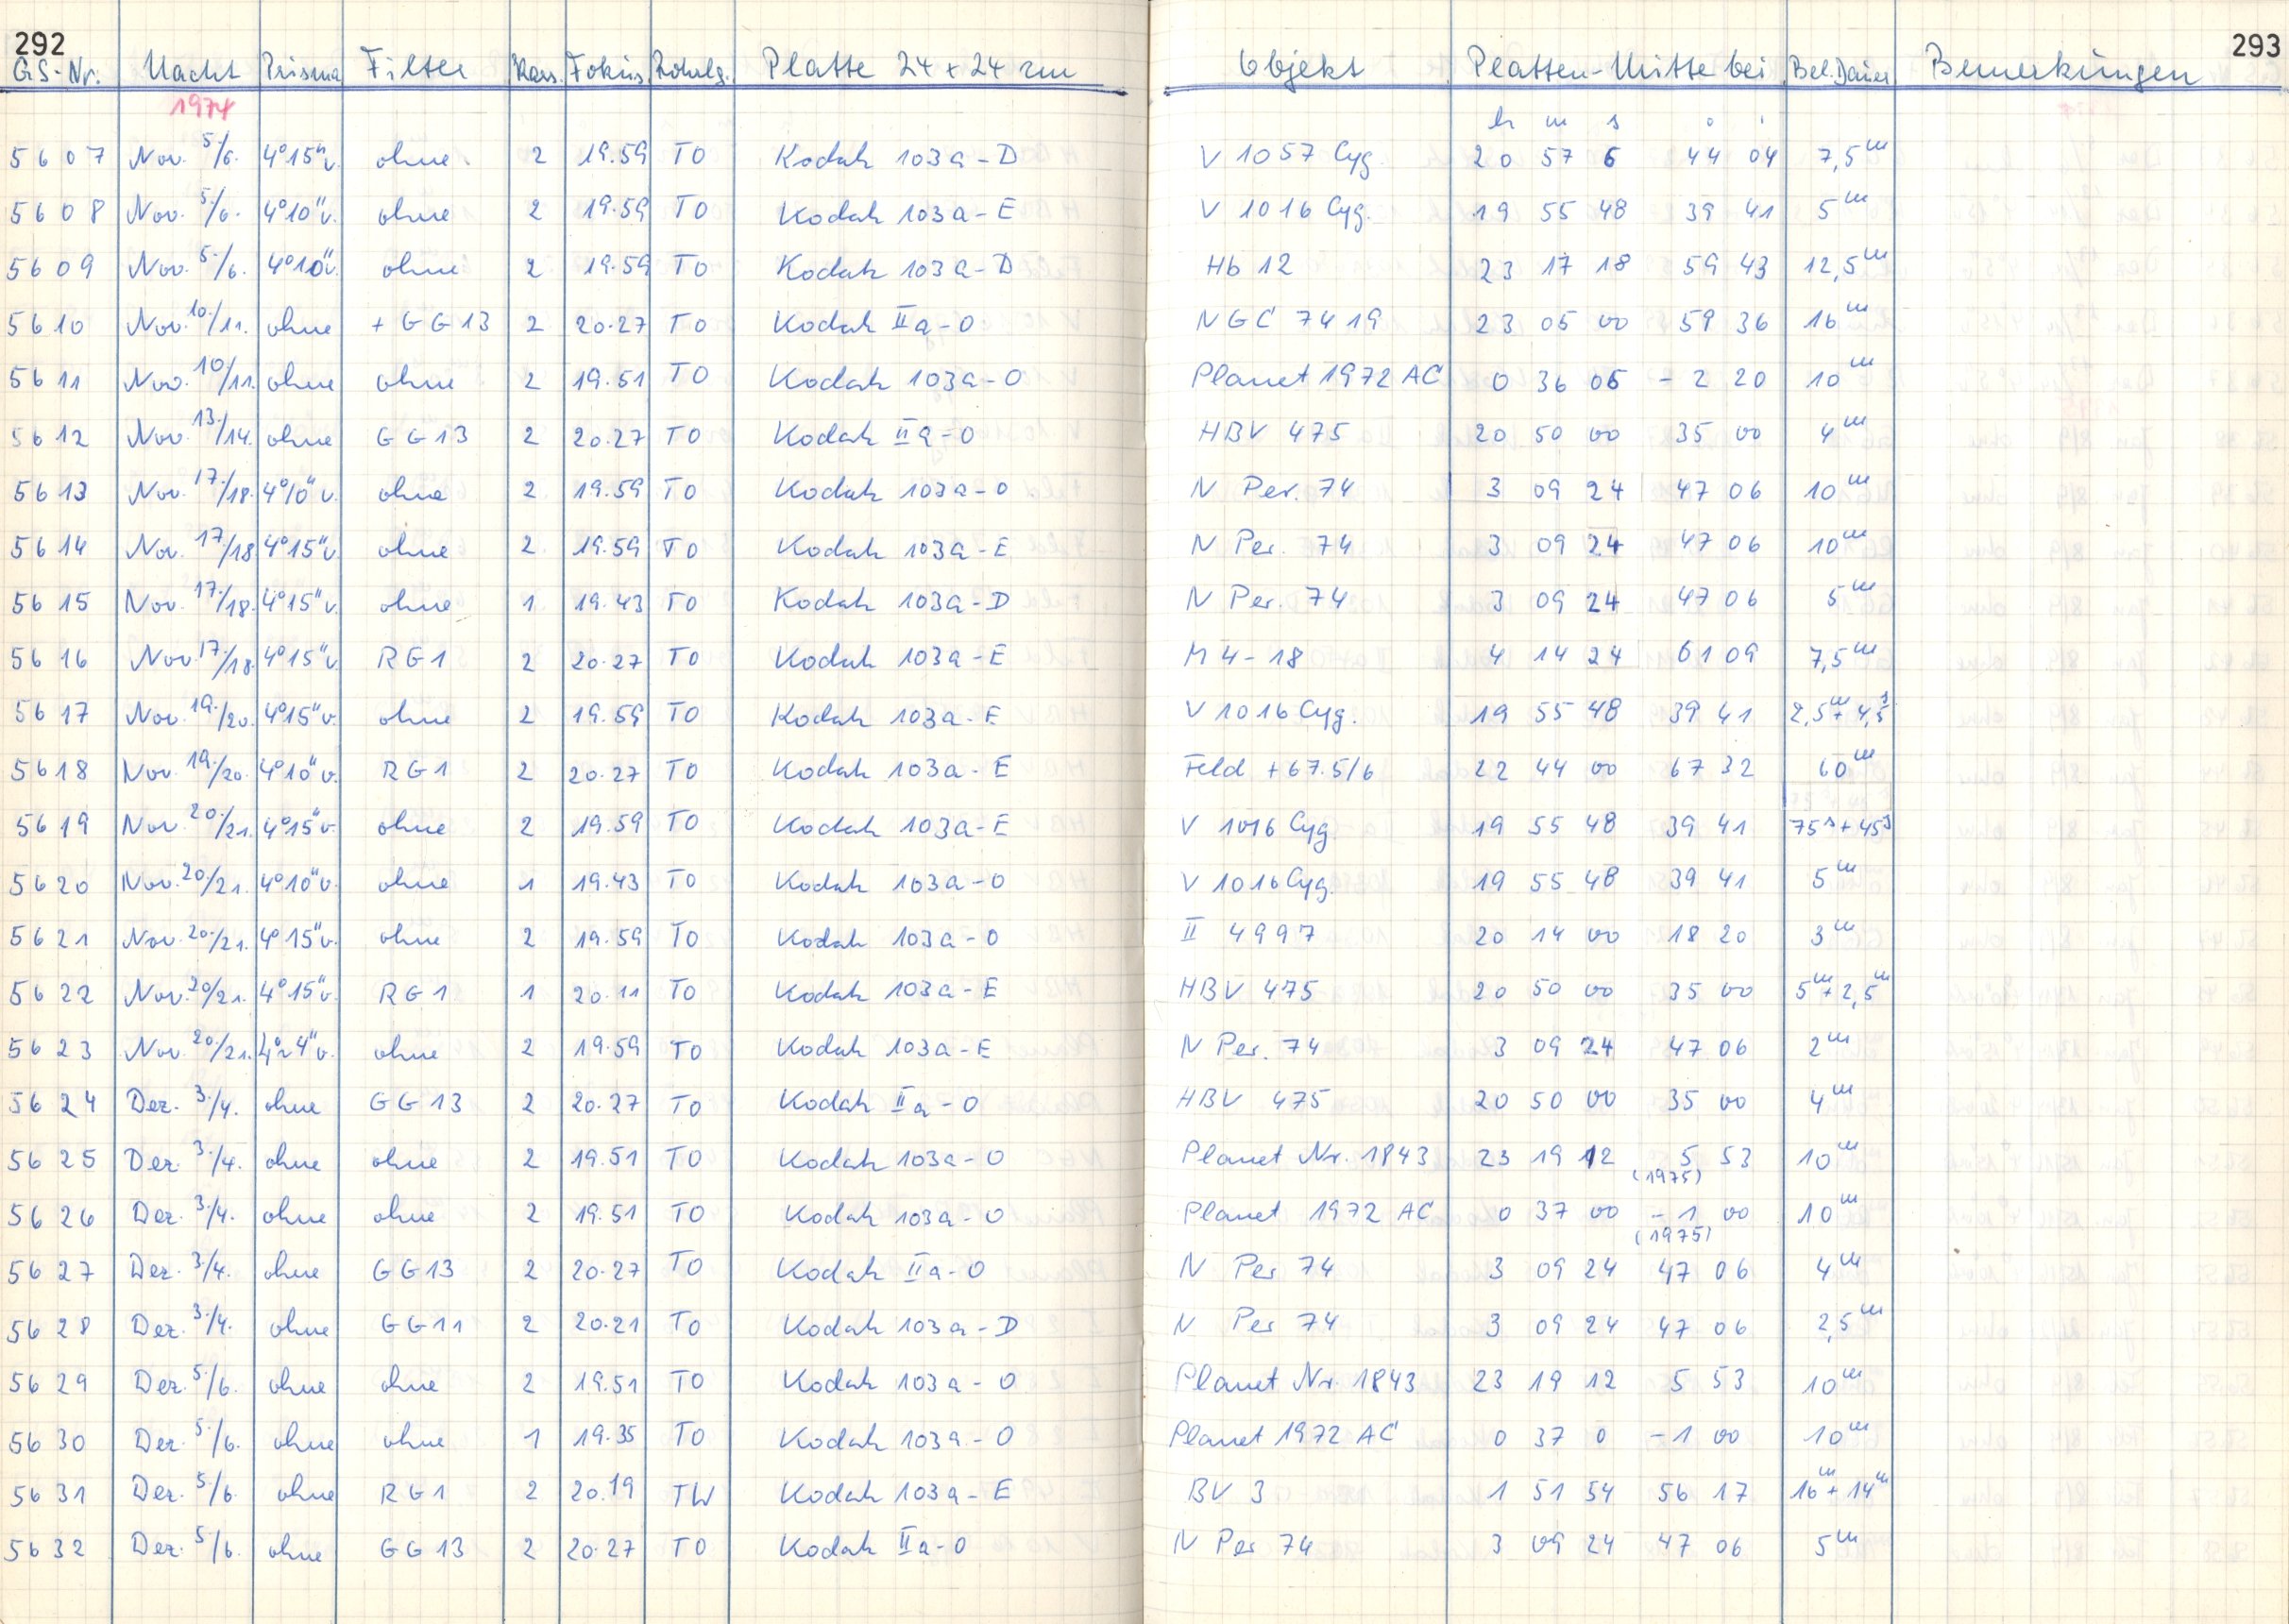 292 293
GS-Nr. Nacht Prisma Filter Kass. Fokus Rohrlg. Platte 24 x 24 cm Objekt Platten-Mitte bei Bel.Dauer Bemerkungen
1974
h m s ° '
5607 Nov. 5/6. 4°15" v. ohne 2 19.59 TO Kodak 103a-D V 1057 Cyg. 20 57 6 44 04 7,5m
5608 Nov. 5/6. 4°10" v. ohne 2 19.59 TO Kodak 103a-E V 1016 Cyg. 19 55 48 39 41 5m
5609 Nov. 5/6. 4°10" v. ohne 2 19.59 TO Kodak 103a-D Hb 12 23 17 18 59 43 12,5m
5610 Nov. 10/11. ohne + GG13 2 20.27 TO Kodak IIa-O NGC 7419 23 05 00 59 36 16m
5611 Nov. 10/11. ohne ohne 2 19.51 TO Kodak 103a-O Planet 1972 AC 0 36 06 -2 20 10m
5612 Nov. 13./14. ohne GG13 2 20.27 TO Kodak IIa-O HBV 475 20 50 00 35 00 4m
5613 Nov. 17./18. 4°10" v. ohne 2 19.59 TO Kodak 103a-O N Per. 74 3 09 24 47 06 10m
5614 Nov. 17/18 4°15" v. ohne 2 19.59 TO Kodak 103a-E N Per. 74 3 09 24 47 06 10m
5615 Nov. 17./18. 4°15" v. ohne 1 19.43 TO Kodak 103a-D N Per. 74 3 09 24 47 06 5m
5616 Nov. 17./18. 4°15" v. RG1 2 20.27 TO Kodak 103a-E M 4-18 4 14 24 61 09 7,5m
5617 Nov. 19./20. 4°15" v. ohne 2 19.59 TO Kodak 103a-E V 1016 Cyg. 19 55 48 39 41 2,5m + 4,5s
5618 Nov. 19./20. 4°10" v. RG1 2 20.27 TO Kodak 103a-E Feld +67.5/6 22 44 00 67 32 60m
5619 Nov. 20./21. 4°15" v. ohne 2 19.59 TO Kodak 103a-E V 1016 Cyg 19 55 48 39 41 75s + 45s
5620 Nov. 20./21. 4°10" v. ohne 1 19.43 TO Kodak 103a-O V 1016 Cyg. 19 55 48 39 41 5m
5621 Nov. 20./21. 4°15" v. ohne 2 19.59 TO Kodak 103a-O II 4997 20 14 00 18 20 3m
5622 Nov. 20/21. 4°15" v. RG1 1 20.11 TO Kodak 103a-E HBV 475 20 50 00 35 00 5m + 2,5m
5623 Nov. 20./21. 4°~4" v. ohne 2 19.59 TO Kodak 103a-E N Per. 74 3 09 24 47 06 2m
5624 Dez. 3./4. ohne GG13 2 20.27 TO Kodak IIa-O HBV 475 20 50 00 35 00 4m
5625 Dez. 3./4. ohne ohne 2 19.51 TO Kodak 103a-O Planet Nr. 1843 23 19 12 5 53 10m
(1975)
5626 Dez. 3./4. ohne ohne 2 19.51 TO Kodak 103a-O Planet 1972 AC 0 37 00 -1 00 10m
(1975)
5627 Dez. 3./4. ohne GG13 2 20.27 TO Kodak IIa-O N Per 74 3 09 24 47 06 4m
5628 Dez. 3./4. ohne GG11 2 20.21 TO Kodak 103a-D N Per 74 3 09 24 47 06 2,5m
5629 Dez. 5./6. ohne ohne 2 19.51 TO Kodak 103a-O Planet Nr. 1843 23 19 12 5 53 10m
5630 Dez. 5./6. ohne ohne 1 19.35 TO Kodak 103a-O Planet 1972 AC 0 37 0 -1 00 10m
5631 Dez. 5./6. ohne RG1 2 20.19 TW Kodak 103a-E BV 3 1 51 54 56 17 16m + 14m
5632 Dez. 5/6. ohne GG13 2 20.27 TO Kodak IIa-O N Per 74 3 09 24 47 06 5m